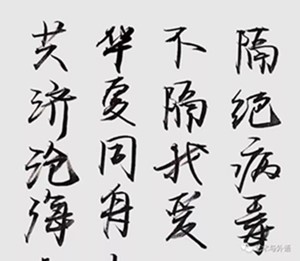 隔绝病毒
不隔我爱
华夏同舟
共济沧海